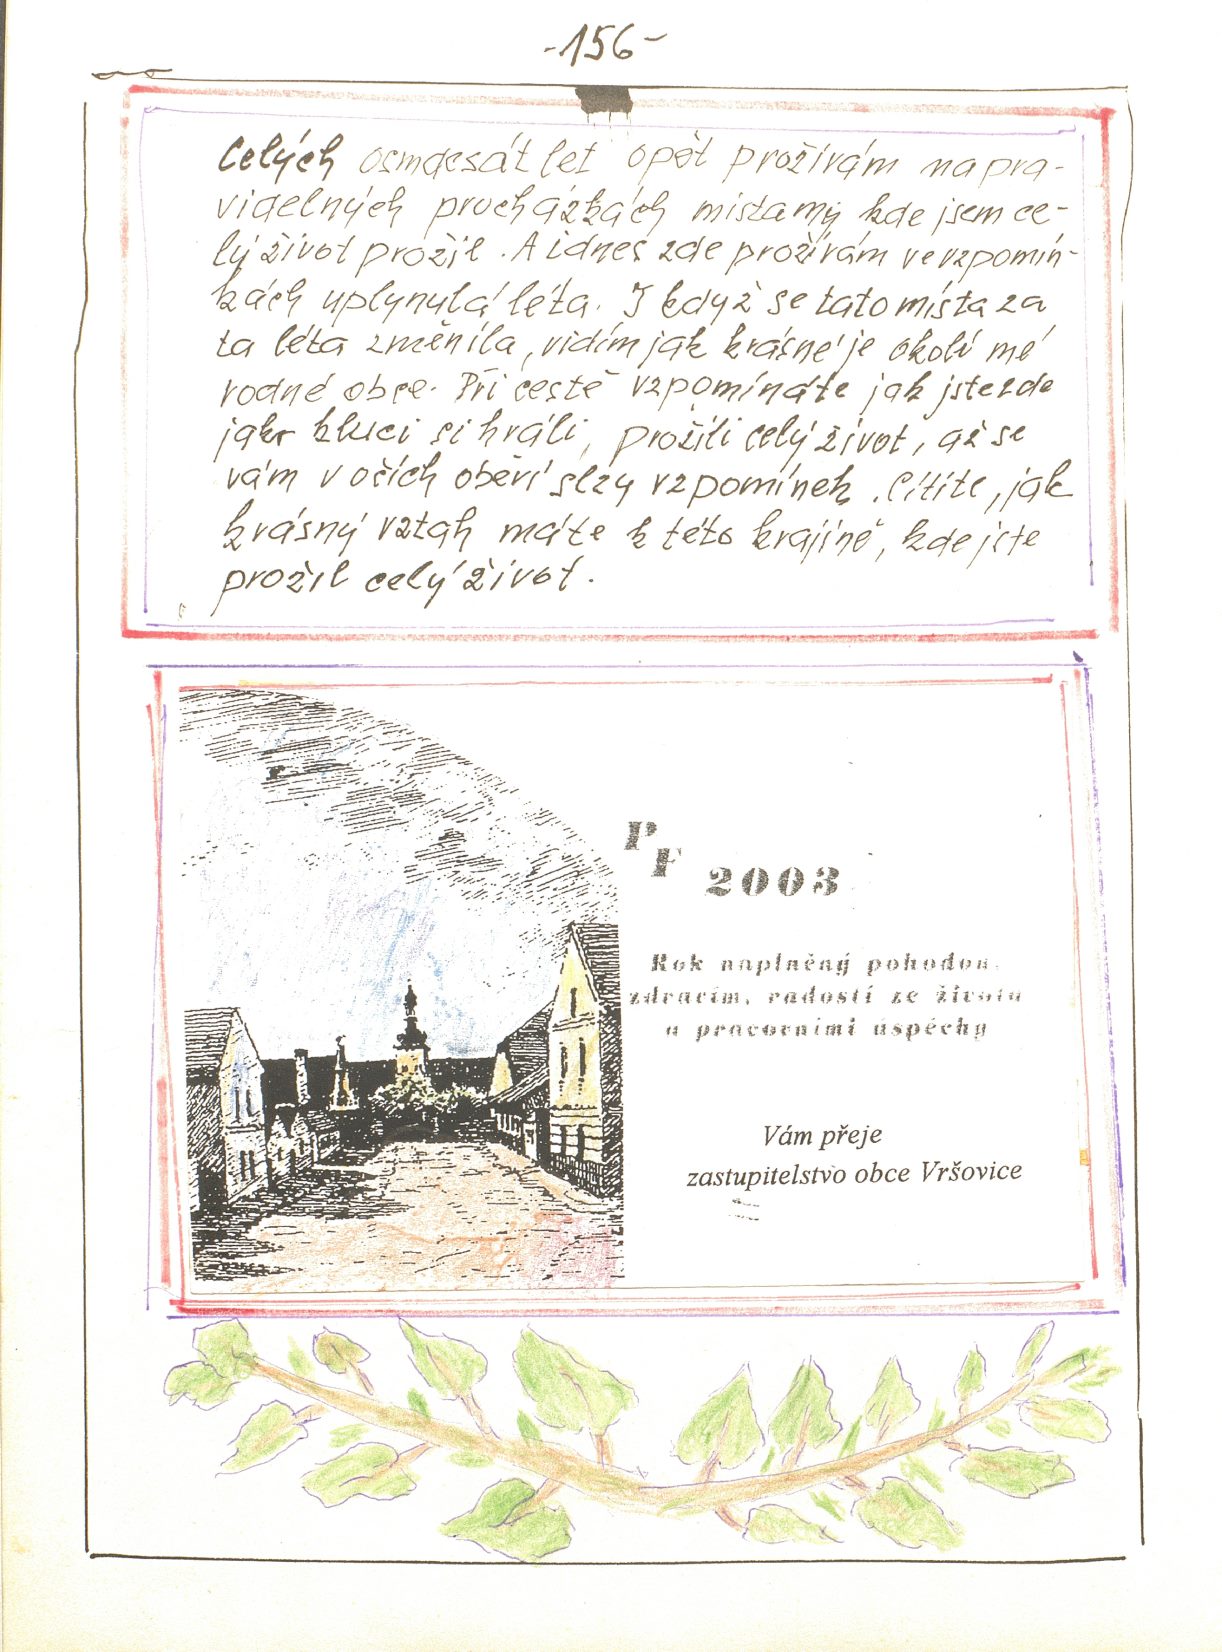 -156-
Celých osmdesát let opět prožívám na pra-
videlných procházkách místamy kde jsem ce-
lý život prožil. A i dnes zde prožívám ve vzpomín-
kách uplynulá léta. I když se tato místa za
ta léta změnila, vidím jak krásné je okolí mé
rodné obce. Při cestě vzpomínáte jak jste zde
jako kluci si hráli, prožili celý život, až se
vám v očích objeví slzy vzpomínek. Cítíte, jak
krásný vztah máte k této krajině, kde jste
prožil celý život.
PF 2003
Rok naplněný pohodou,
zdravím, radostí ze života
a pracovními úspěchy
Vám přeje
zastupitelstvo obce Vršovice